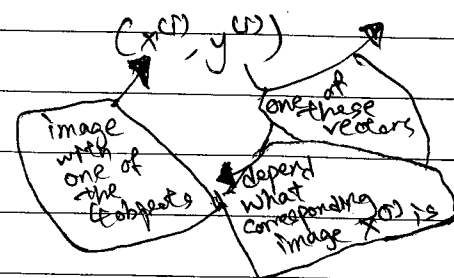 (x^(i), y^(i))
image
with
one of
the
4 objects
one of
these
vectors
depend
what
corresponding
image x^(i) is